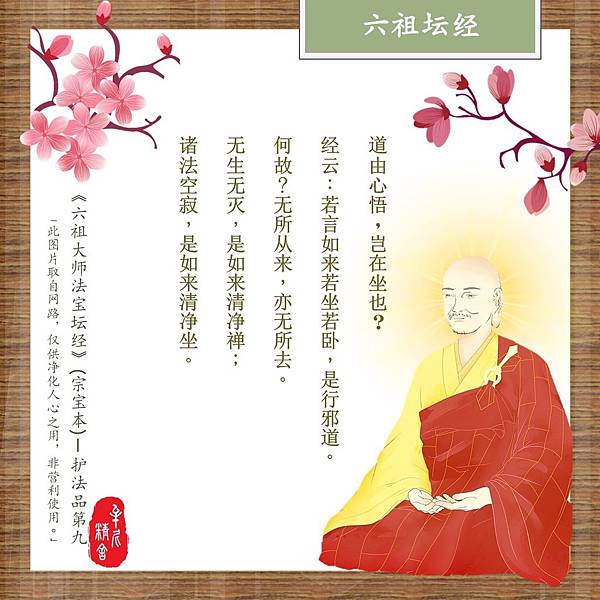 六祖坛经
道由心悟，岂在坐也？
经云：若言如来若坐若卧，是行邪道。
何故？无所从来，亦无所去。
无生无灭，是如来清净禅；
诸法空寂，是如来清净坐。
《六祖大师法宝坛经》(宗宝本)—护法品第九
「此图片取自网路，仅供净化人心之用，非营利使用。」
精舍